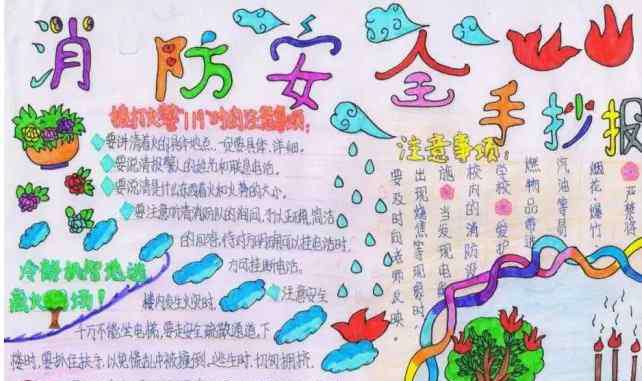 消防安全手抄报
拨打火警119时的注意事项:
要讲清着火的具体地点,一定要具体、详细。
要说清报警人的姓名和联系电话。
要说清是什么东西着火和火势的大小。
要注意听清消防队的询问,予以正确,简洁
的回答,待对方明确可挂电话时,
方可挂断电话。
冷静机智地逃
离火场!
注意安全
楼内发生火灾时,
千万不能坐电梯,要走安全疏散通道,下
楼时,要抓住扶手,以免慌乱中被撞倒。逃生时,切勿拥挤。
注意事项:
严禁将
烟花、爆竹
汽油等易
燃物品带进
学校。爱护
校内的消防设
施。当发现电器
出现烧焦等现象时,
要及时向老师反映。